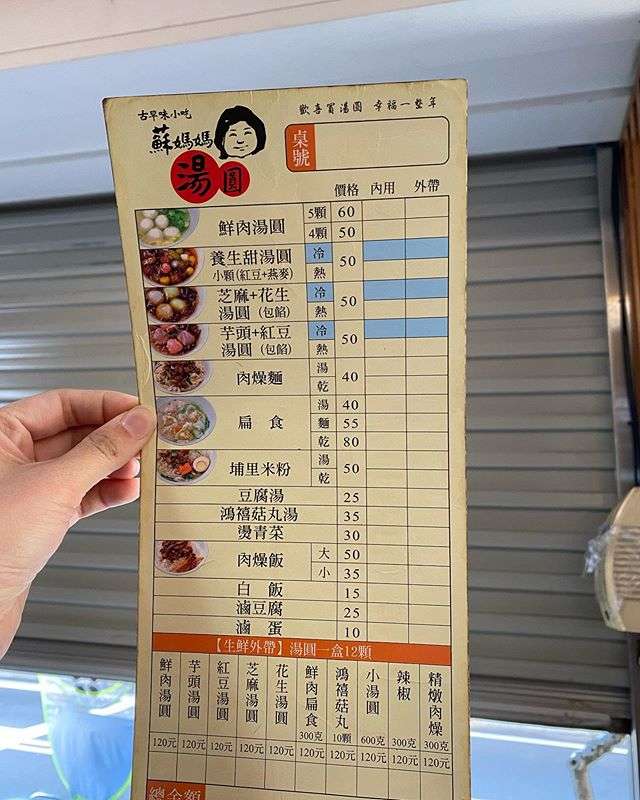 古早味小吃
蘇媽媽
湯圓
歡喜買湯圓 幸福一整年
桌號
價格 內用 外帶
鮮肉湯圓 5顆 60
4顆 50
養生甜湯圓 冷 50
小顆(紅豆+燕麥) 熱
芝麻+花生 冷 50
湯圓(包餡) 熱
芋頭+紅豆 冷 50
湯圓(包餡) 熱
肉燥麵 湯 40
乾
扁食 湯 40
麵 55
乾 80
埔里米粉 湯 50
乾
豆腐湯 25
鴻禧菇丸湯 35
燙青菜 30
肉燥飯 大 50
小 35
白飯 15
滷豆腐 25
滷蛋 10
【生鮮外帶】湯圓一盒12顆
鮮肉湯圓 120元
芋頭湯圓 120元
紅豆湯圓 120元
芝麻湯圓 120元
花生湯圓 120元
鮮肉扁食 300克 120元
鴻禧菇丸 10顆 120元
小湯圓 600克 120元
辣椒 300克 120元
精燉肉燥 300克 120元
總金額